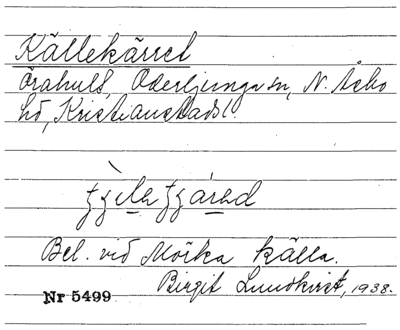 Källekärret
Örahult, Oderljunga sn, N. Åsbo
hd, Kristianstads l.
Bel. vid Mörka källa.
Birgit Lundkvist, 1938.
Nr 5499